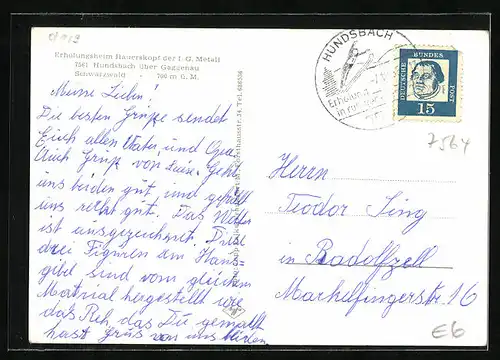 Erholungsheim Hauerskopf der I.G. Metall
7561 Hundsbach über Gaggenau
Schwarzwald 700 m ü. M.
Meine Lieben!
Die besten Grüße sendet
Euch allen Vater und Opa.
Auch Gruß von Luise. Geht
uns beiden gut, und gefällt
uns recht gut. Das Wetter
ist ausgezeichnet. Diese
drei Figuren am Haus-
gibel sind vom gleichen
Material hergestellt wie
das Reh, das Du gemalt
hast Gruß von uns beiden
HUNDSBACH
Erholung
in ruhiger
DEUTSCHE BUNDES POST
15
7564
Herrn
Teodor Sing
in Radolfzell
Markelfingerstr. 16
E6